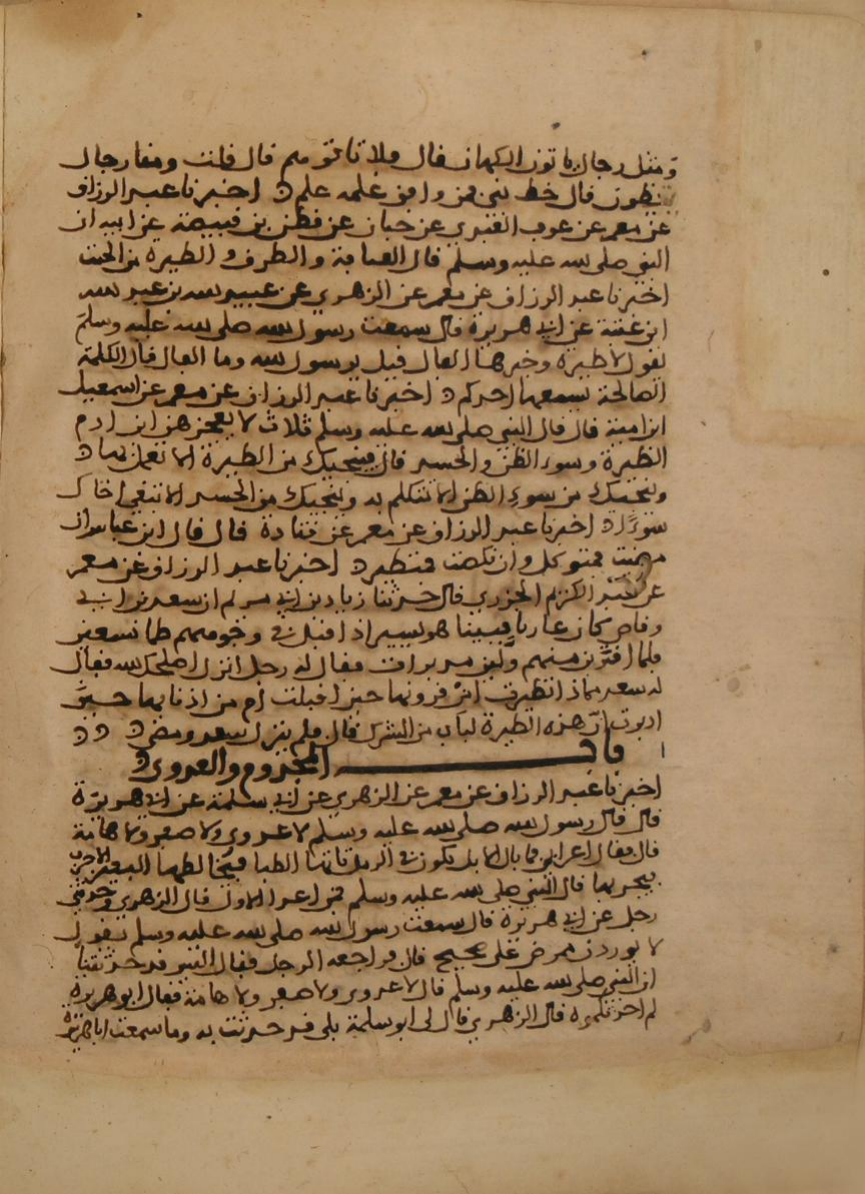 ومنا رجال ياتون الكهان قال ولا تاتوهم قال قلت ومنا رجال
يخطون قال خط نبي فمن وافق علمه علم ه اخبرنا عبد الرزاق
عن معمر عن عوف العبدي عن حيان عن قطن بن قبيصة عن ابيه ان
النبي صلى الله عليه وسلم قال العيافة والطرق والطيرة من الجبت
اخبرنا عبد الرزاق عن معمر عن الزهري عن عبيد الله بن عبد الله
ابن عتبة عن ابي هريرة قال سمعت رسول الله صلى الله عليه وسلم
يقول لا طيرة وخيرها الفال قيل يرسول الله وما الفال قال الكلمة
الصالحة يسمعها احدكم ه اخبرنا عبد الرزاق عن معمر عن اسمعيل
ابن امية قال قال النبي صلى الله عليه وسلم ثلاث لا يعجزهن ابن ادم
الطيرة وسوء الظن والحسد قال فينجيك من الطيرة الا تعمل بها ه
وينجيك من سوء الظن الا تتكلم به وينجيك من الحسد الا تبغي اخاك
سوءا ه اخبرنا عبد الرزاق عن معمر عن قتادة قال قال ابن عباس ان
مضيت فمتوكل وان نكصت فمتطير ه اخبرنا عبد الرزاق عن معمر
عن عبد الكريم الجزري قال حدثنا زياد بن ابي مريم ان سعد بن ابي
وقاص كان غازيا فبينا هو يسير اذ اقبل في وجوههم ظبا تسعين
فلما اقتربن منهم ولين مدبرات فقال له رجل انزل اصلحك الله فقال
له سعد مماذا تطيرت امن قرونها حين اقبلت ام من اذنابها حين
ادبرت ان هذه الطيرة لباب من الشرك قال فلم ينزل سعد ومضى ه ه ه
باب المجذوم والعدوى ه
اخبرنا عبد الرزاق عن معمر عن الزهري عن ابي سلمة عن ابي هريرة
قال قال رسول الله صلى الله عليه وسلم لا عدوى ولا صفر ولا هامة
قال فقال اعرابي فما بال الابل تكون في الرمل كانها الظبا فيخالطها البعير الاجرب
فيجربها قال النبي صلى الله عليه وسلم فمن اعدا الاول قال الزهري وحدثني
رجل عن ابي هريرة قال سمعت رسول الله صلى الله عليه وسلم يقول
لا يوردن ممرض على مصحح قال فراجعه الرجل فقال اليس قد حدثتنا
ان النبي صلى الله عليه وسلم قال لا عدوى ولا صفر ولا هامة فقال ابو هريرة
لم احدثكموه قال الزهري قال لي ابو سلمة بلى قد حدثت به وما سمعت ابا هريرة